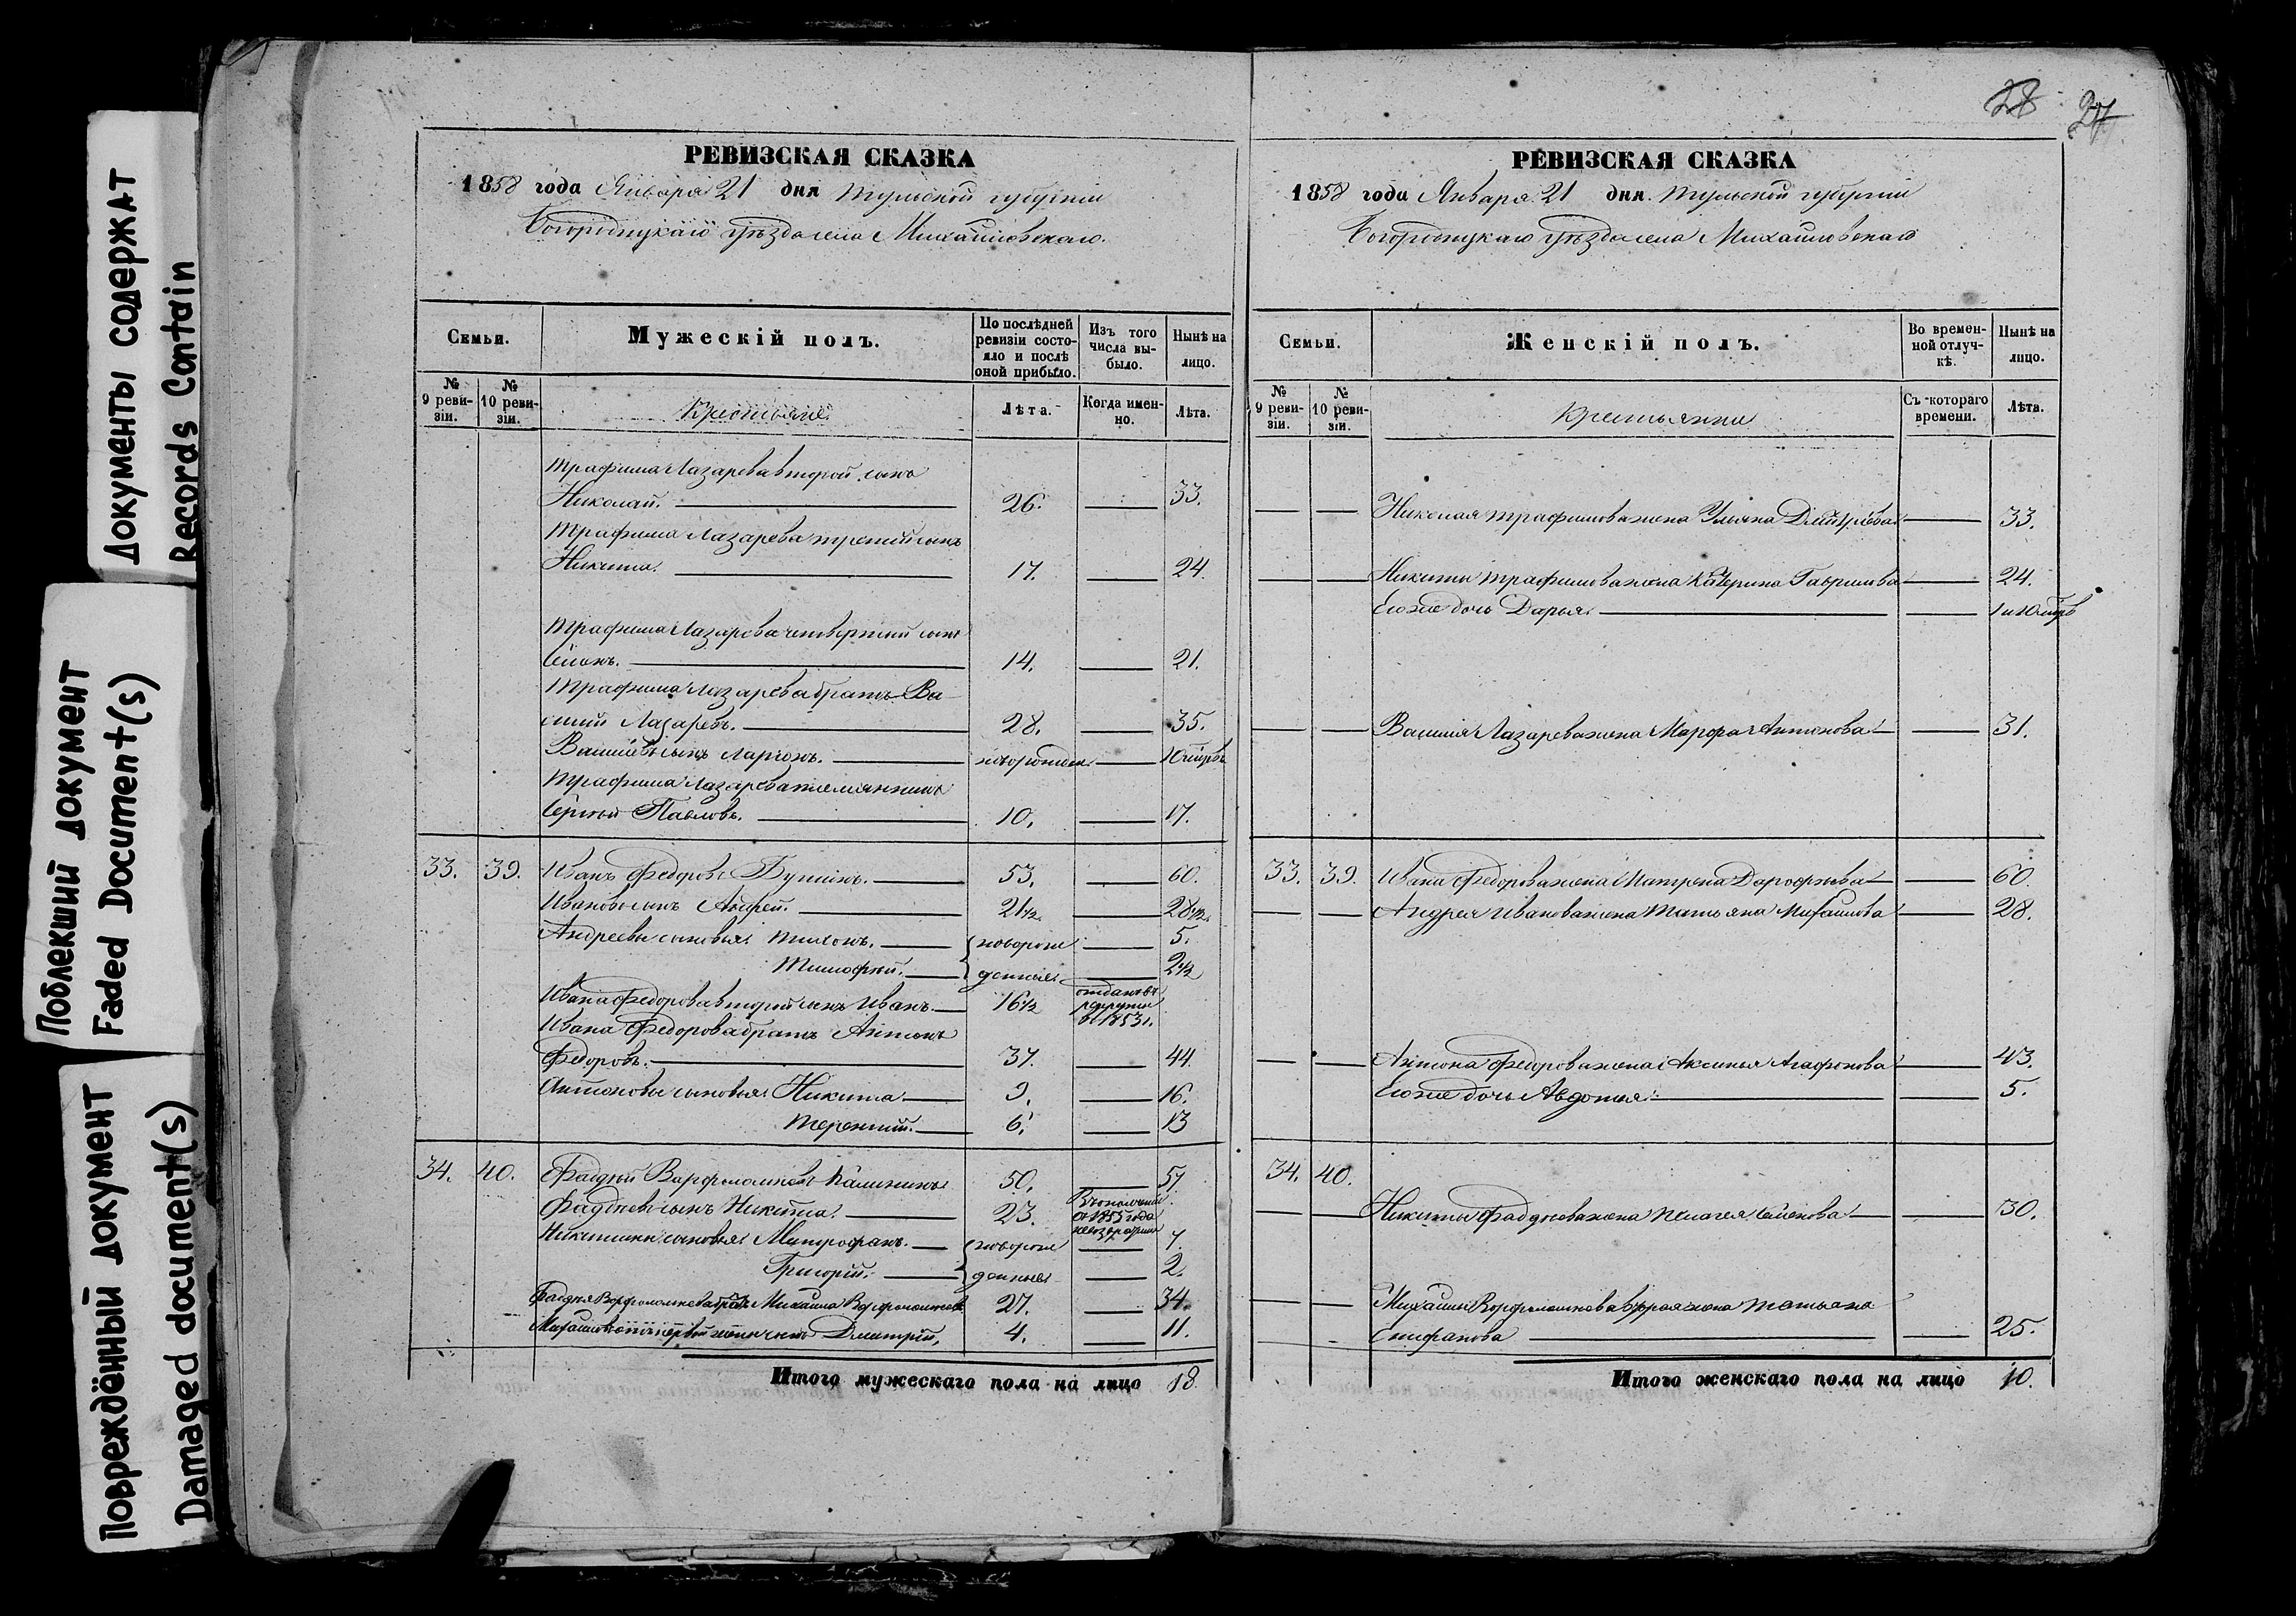 Документы содержат
Records Contain
Поблекший документ
Faded Document(s)
Повреждённый документ
Damaged document(s)
РЕВИЗСКАЯ СКАЗКА
1858 года Января 21 дня Тульской губернiи
Богородицкаго уѣзда села Михайловскаго.
Семьи.
Мужескiй полъ.
По послѣдней
ревизiи состо-
яло и послѣ
оной прибыло.
Изъ того
числа вы-
было.
Нынѣ на
лицо.
№
9 реви-
зiи.
№
10 реви-
зiи.
Крестьяне
Лѣта.
Когда имен-
но.
Лѣта.
Трафима Лазарева второй сынъ
Николай. 26. 33.
Трафима Лазарева третiй сынъ
Никита. 17. 24.
Трафима Лазарева четвертый сынъ
Семонъ. 14. 21.
Трафима Лазарева братъ Ва-
силий Лазаревъ. 28. 35.
Васильевъ сынъ Ларiонъ. новорожден.
Трафима Лазарева племянникъ
Сергѣй Павловъ. 10. 17.
33. 39. Иванъ Федоровъ 53. 60.
Ивановъ сынъ Андрей. 21½ 28½
Андреевы сыновья Тихонъ. новорож 5.
Тимофѣй. денные 2½
Ивана Федорова второй сынъ Иванъ. 16½ отданъ въ
рекруты
въ 1853 г.
Ивана Федорова братъ Антонъ
Федоровъ. 37. 44.
Антоновы сыновья Никита 9. 16.
Терентiй. 6. 13
34. 40. Фадѣй Варфоломѣевъ Калининъ 50. 57.
Фадѣевъ сынъ Никита. 23. В ополченiи
съ 1855 года
Никитины сыновья Митрофанъ. новорож 7.
Григорiй. денные 2.
Фадѣя Варфоломѣева братъ Михаила Варфоломѣевъ 27. 34.
Михайловъ отъ первой жены сынъ Дмитрiй, 4. 11.
Итого мужескаго пола на лицо 18.
28 27
РЕВИЗСКАЯ СКАЗКА
1858 года Января 21 дня Тульской губернiи
Богородицкаго уѣзда села Михайловскаго
Семьи.
Женскiй полъ.
Во времен-
ной отлуч-
кѣ.
Нынѣ на
лицо.
№
9 реви-
зiи.
№
10 реви-
зiи.
Крестьянки
Съ котораго
времени.
Лѣта.
Николая Трафимова жена Ульяна Дмитрiева 33.
Никиты Трафимова жена Катерина Гаврилова 24.
Егоже дочь Дарья
Василия Лазарева жена Марфа Антонова 31.
33. 39. Ивана Федорова жена Матрена Дорофѣева 60.
Андрея Иванова жена Татьяна Михайлова 28.
Антона Федорова жена Аксинья Агафонова 43.
Егоже дочь Авдотья 5.
34. 40.
Никиты Фаддѣева жена Пелагея Семенова 30.
Михайлы Варфоломѣева вторая жена Татьяна
Епифанова 25.
Итого женскаго пола на лицо 10.